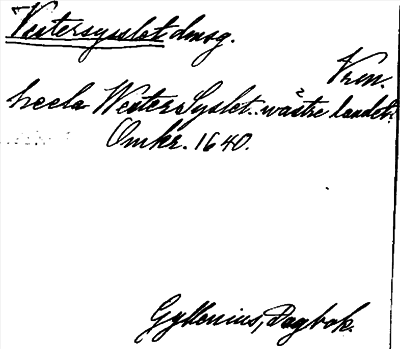 Vestersysslet dmsg.
Vrm.
heela Wester Syslet.. wästre landet.
Omkr. 1640.
Gyllenius, Dagbok.